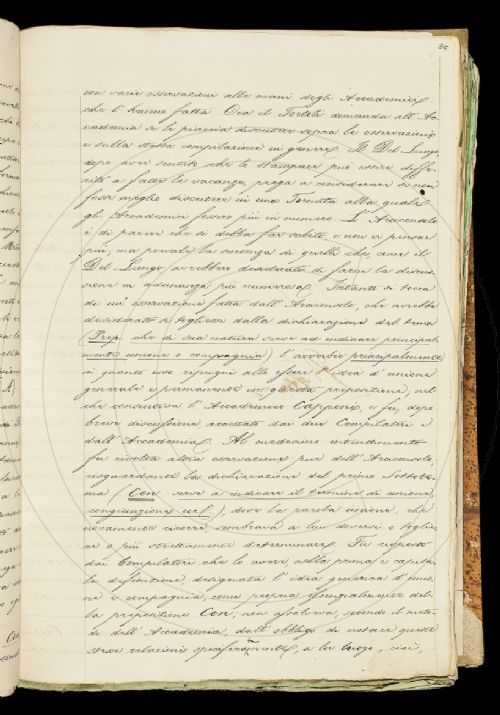 con varie osservazioni alle mani degli Accademici
che l'hanno fatta. Ora il Tortoli domanda all'Ac-
cademia se le piaccia discutere sopra le osservazioni
e sulla stessa compilazione in genere. Il Del Lungo
dopo aver sentito che lo stampare può essere diffe-
rito a fatte le vacanze, prega a considerare se non
fosse meglio discutere in una Tornata alla quale
gli Accademici fossero più in numero. L'Arcangeli
è di parere che si debba far subito, e non ci pensar
più, ma prevale la sentenza di quelli che, come il
Del Lungo, avrebbero desiderato di farne la discus-
sione in adunanza più numerosa. Intanto si tocca
di un'osservazione fatta dall'Arcangeli, che avrebbe
desiderato si togliesse dalla dichiarazione del tema
(Prep. che di sua natura serve ad indicare principal-
mente unione e compagnia) l'avverbio principalmente
in quanto esso ripugni alla essere l'idea d'unione
generale e permanente in questa preposizione, nel
che consentiva l'Accademico Capponi, e fu, dopo
breve discussione accettato dai due Compilatori e
dall'Accademia. Al medesimo intendimento
fu rivolta altra osservazione pur dell'
risguardante la dichiarazione del primo Sottote-
ma (Con serve a indicare il termine di unione,
congiunzione ecc.), dove la parola unione, che
novamente ricorre, sembrava a lui doversi o toglie-
re o più strettamente determinare. Fu risposto
dai Compilatori che lo avere, nella prima e capita-
le definizione, designata l'idea generica d'unio-
ne e compagnia, come propria essenzialmente del-
la preposizione Con, non escludeva, secondo il meto-
do dell'Accademia, dall'obbligo di notare queste
stesse relazioni specificamente, a lor luogo, cioè,